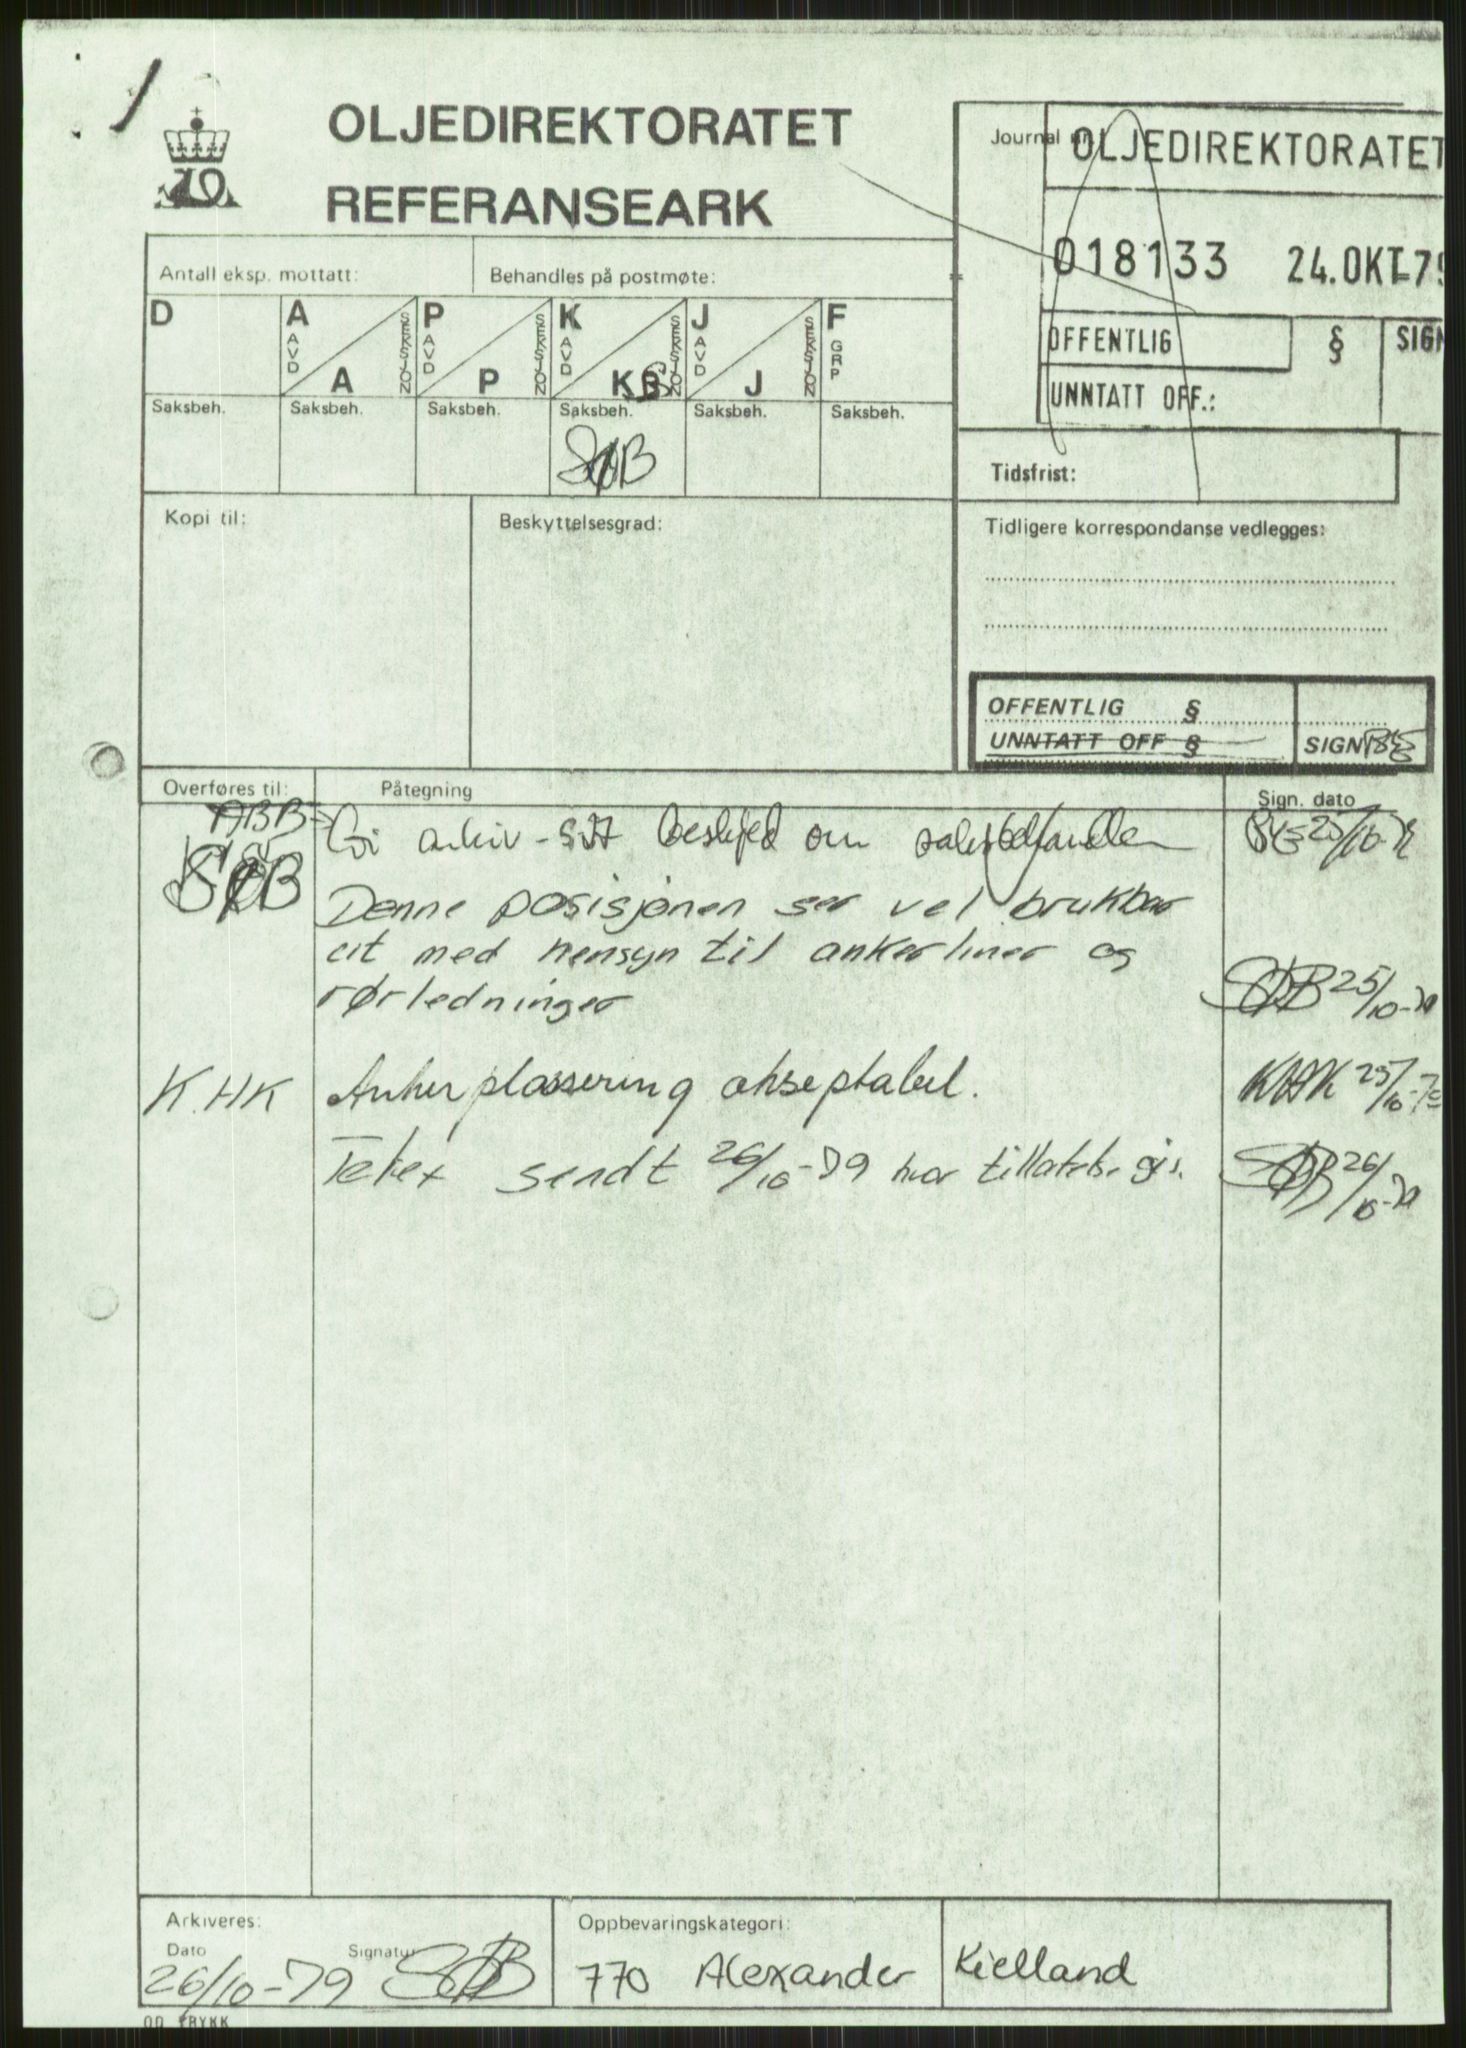 OLJEDIREKTORATET
REFERANSEARK
Journal nr
OLJEDIREKTORATET
018133 24.OKT.79
OFFENTLIG § SIGN
UNNTATT OFF.:
Antall eksp. mottatt: Behandles på postmøte:
D A AVD SEKSJON A P AVD SEKSJON P K AVD SEKSJON K J AVD SEKSJON J F GRP
Saksbeh. Saksbeh. Saksbeh. Saksbeh. Saksbeh. Saksbeh.
SØB
Tidsfrist:
Kopi til: Beskyttelsesgrad:
Tidligere korrespondanse vedlegges:
OFFENTLIG §
UNNTATT OFF § SIGN
Overføres til: Påtegning Sign. dato
ABB Gi arkiv - beskjed om saksbehandler 25/10-79
SØB
Denne posisjonen ser vel brukbar
ut med hensyn til ankerliner og
rørledninger SØB 25/10-79
K.HK Ankerplassering akseptabel. KHK 25/10-79
Telex sendt 26/10-79 hvor tillatelse gis. SØB 26/10-79
Arkiveres: Oppbevaringskategori:
Dato Signatur
26/10-79 SØB 770 Alexander Kielland
OD TRYKK